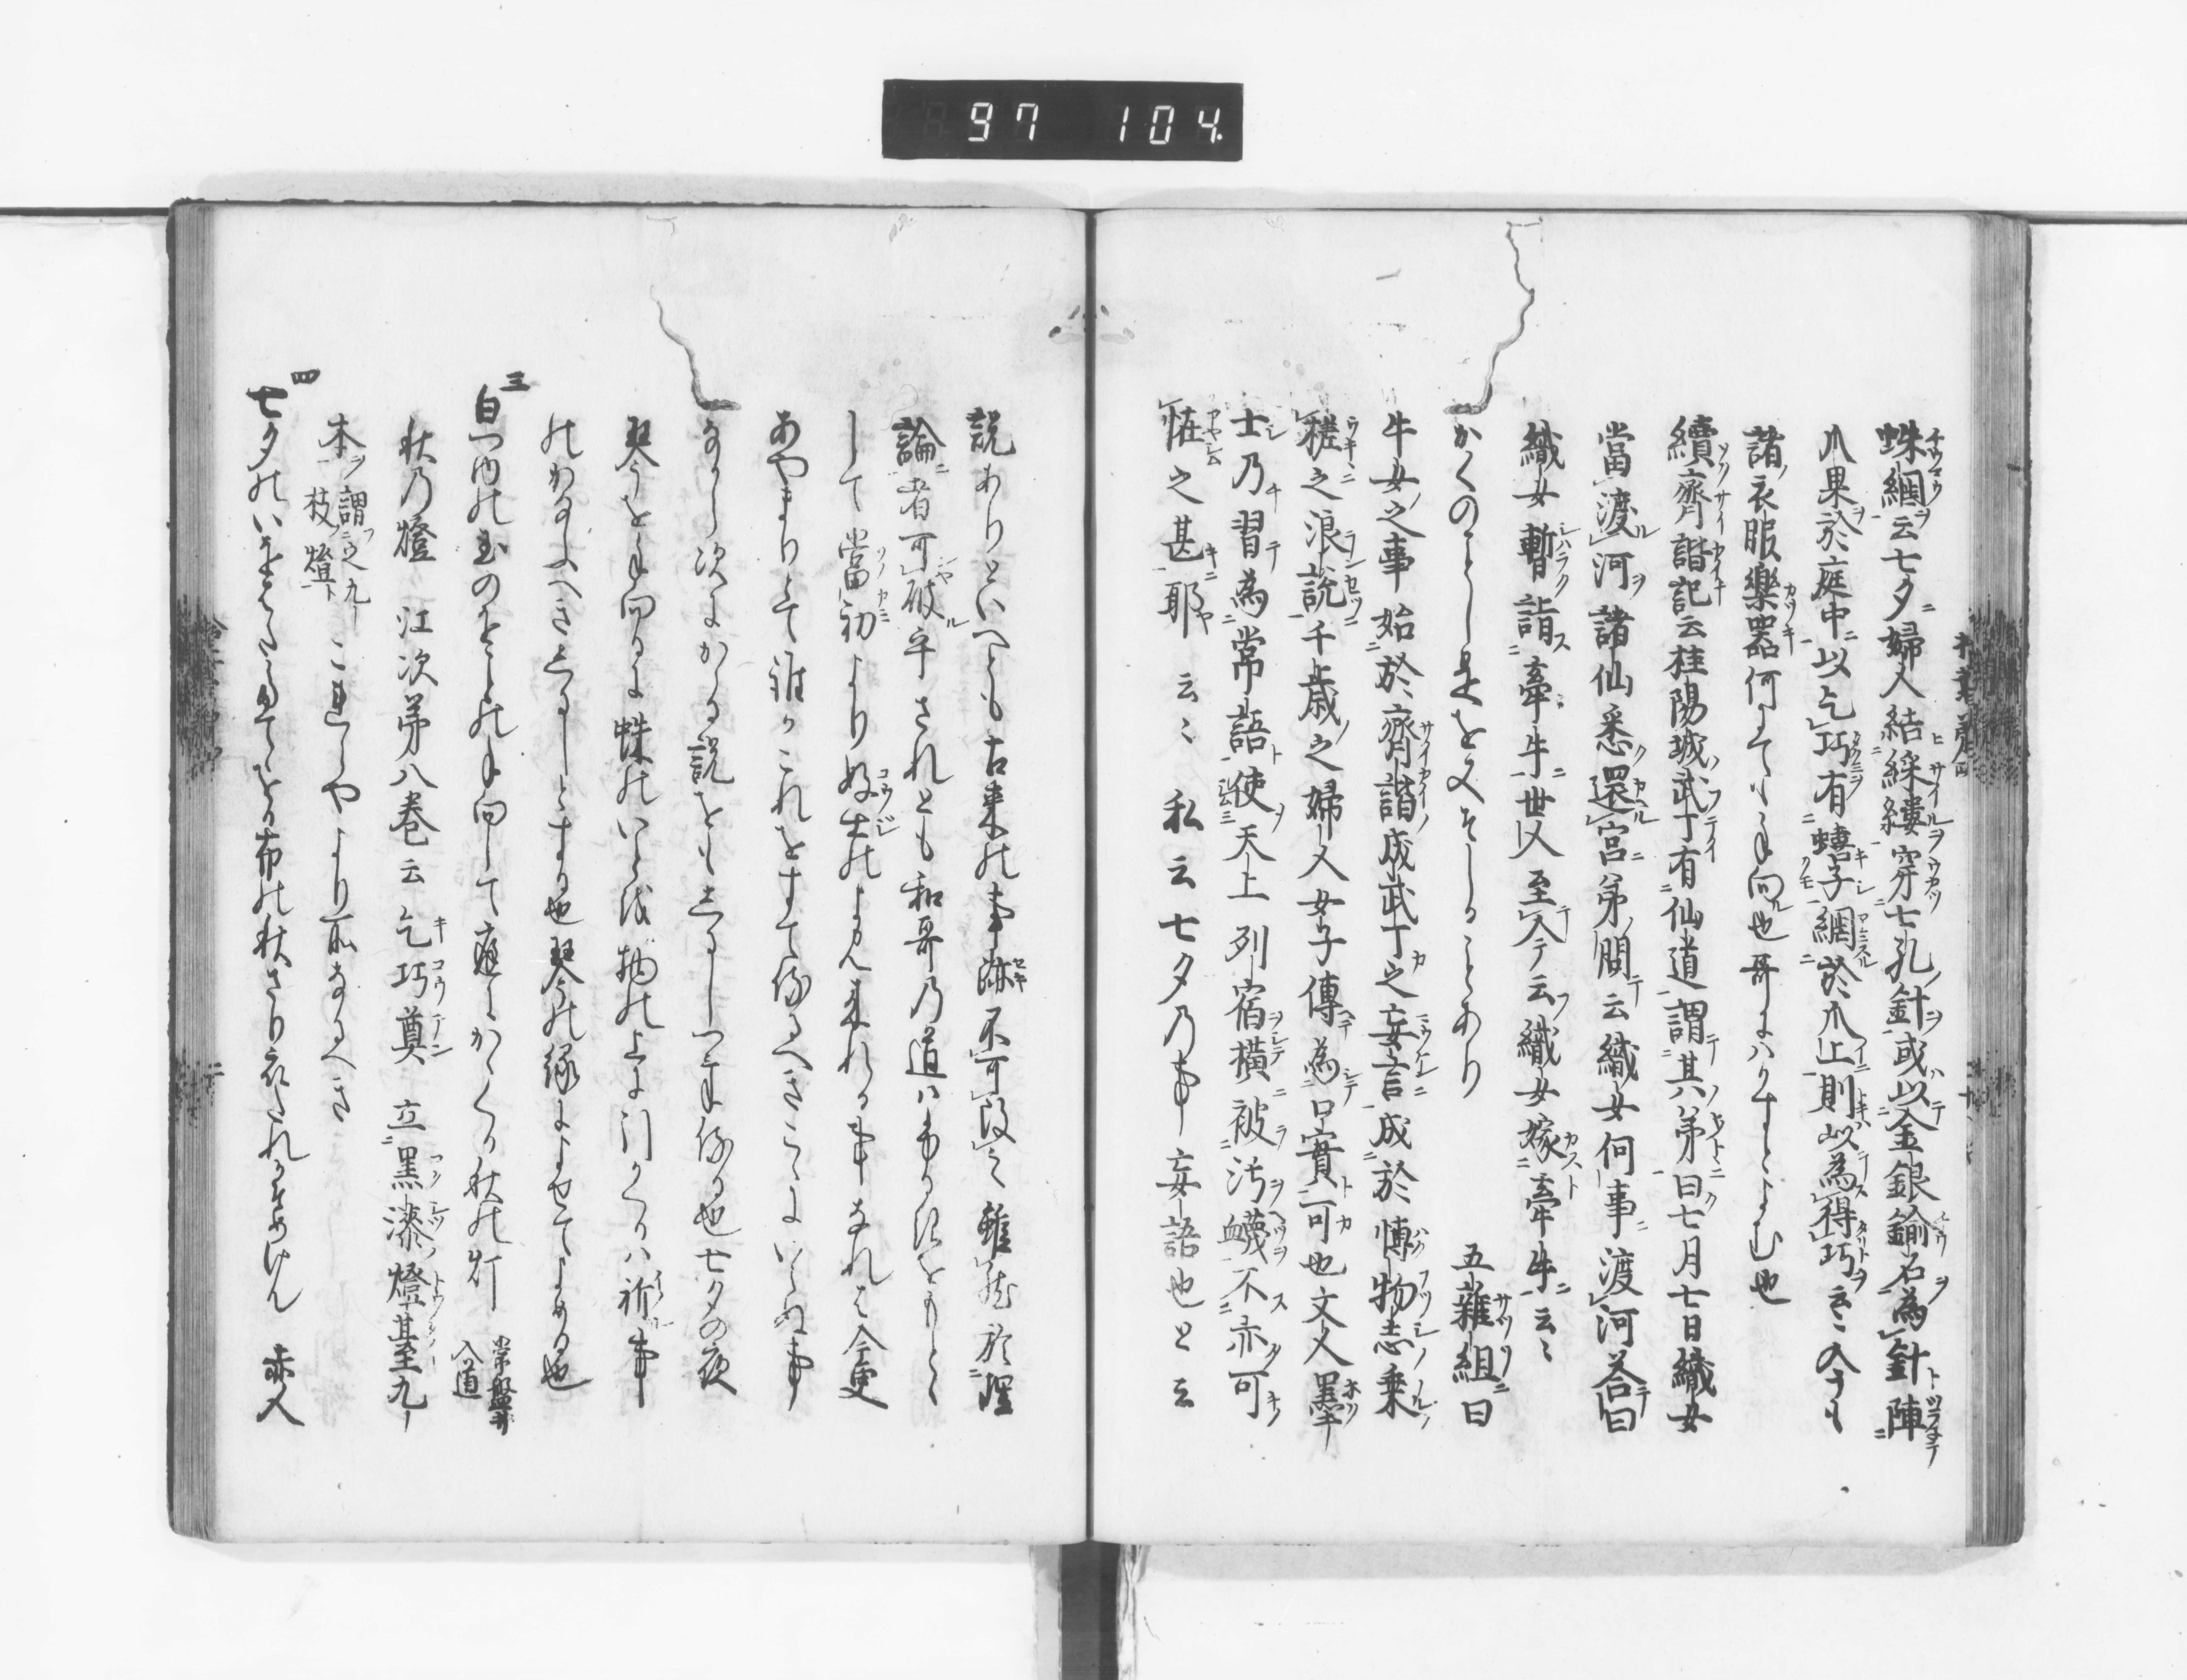 97 104.
蛛網云七夕婦人結綵縷穿七孔針或以金銀鍮石為針陣
爪果於庭中以乞巧有蟢子網於爪上則以為得巧云々今も
諸衣服樂器何にても手向ル也哥にハかすとよむ也
續齊諧記云桂陽城武丁有仙道謂其弟曰七月七日織女
當渡河諸仙悉還宮弟問云織女何事渡河荅曰
織女暫詣牽牛世人至今云織女嫁牽牛云々
かくのことし是を又そしることあり 五雜組曰
牛女之事始於齊諧成武丁之妄言成於博物志乗
槎之浪説千歳之婦人女子傳為口實可也文人墨
士乃習為常語使天上列宿横被汚衊不亦可
恠之甚耶 云々 私云七夕乃事妄語也と云
説ありといへとも古来の事跡不可改之雖然於理
論者可破乎されとも和哥乃道ハ
して當初より好士のよみ来れる事なれは今更
あやまりとて誰かこれをすて侍るへきことにいらぬ事
なから次にかゝる説をもしるしつけ侍る也七夕の夜
琴を手向るに蛛のいと彼物の上に引くるハ祈事
のかなふへきしるしとする也琴の緒によせてよめる也
三
白つゆの玉のをことの手向して庭にかゝくる秋の灯 常盤井入道
秋乃燈 江次第八巻云 乞巧奠 立黒漆燈基九
本謂之九枝燈 これらやより所なるへき
四
七夕の 布の秋さり衣たれかとめけん 赤人